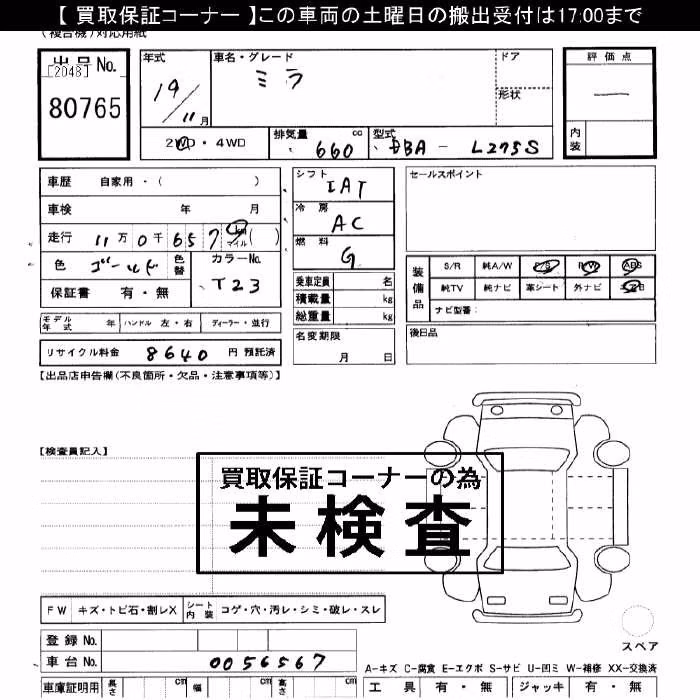 【 買取保証コーナー 】この車両の土曜日の搬出受付は17:00まで
(複合機)対応用紙
出品No.
[2048]
80765
年式
19/11月
車名・グレード
ミラ
ドア
形状
評価点
内装
2WD・4WD
排気量 660 cc
型式 DBA - L275S
車歴 自家用・( )
車検 年 月
走行 11万0千657 km マイル ( )
色 ゴールド 色替
カラーNo. T23
保証書 有・無
シフト IAT
冷房 AC
燃料 G
乗車定員 名
積載量 kg
総重量 kg
セールスポイント
装備品
S/R 純A/W P/S P/W ABS
純TV 純ナビ 革シート 外ナビ
ナビ型番:
モデル年式 年 ハンドル 左・右 ディーラー・並行
名変期限
月 日
後日品
リサイクル料金 8640 円 預託済
【出品店申告欄(不良箇所・欠品・注意事項等)】
【検査員記入】
買取保証コーナーの為
未検査
FW キズ・トビ石・割レX シート内装 コゲ・穴・汚レ・シミ・破レ・スレ
スペア
登録No.
車台No. 0056567
A-キズ C-腐食 E-エクボ S-サビ U-凹ミ W-補修 XX-交換済
車庫証明用 長さ cm 幅 cm 高さ cm
工具 有・無 ジャッキ 有・無